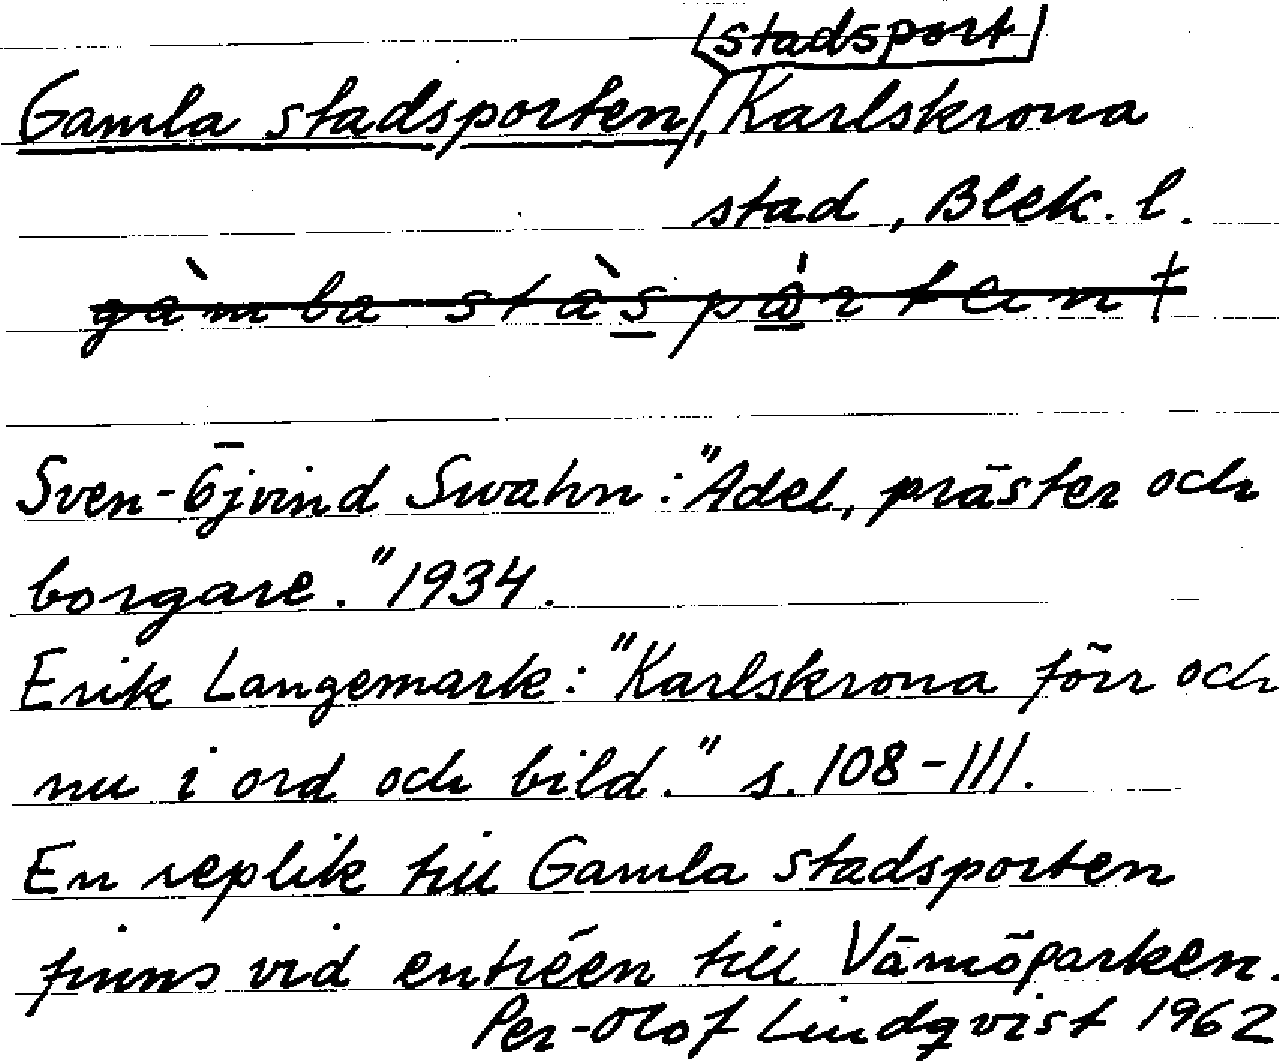 stadsport
Gamla stadsporten, Karlskrona
stad, Blek. l.
gàmla stàspǻrten †
Sven-Öjvind Swahn: "Adel, präster och
borgare." 1934.
Erik Langemark: "Karlskrona förr och
nu i ord och bild." s. 108-111.
En replik till Gamla stadsporten
finns vid entréen till Vämöparken.
Per-Olof Lindqvist 1962